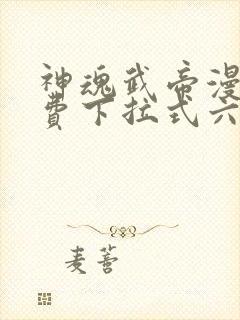 神魂武帝漫
费下拉式六
麦蒼